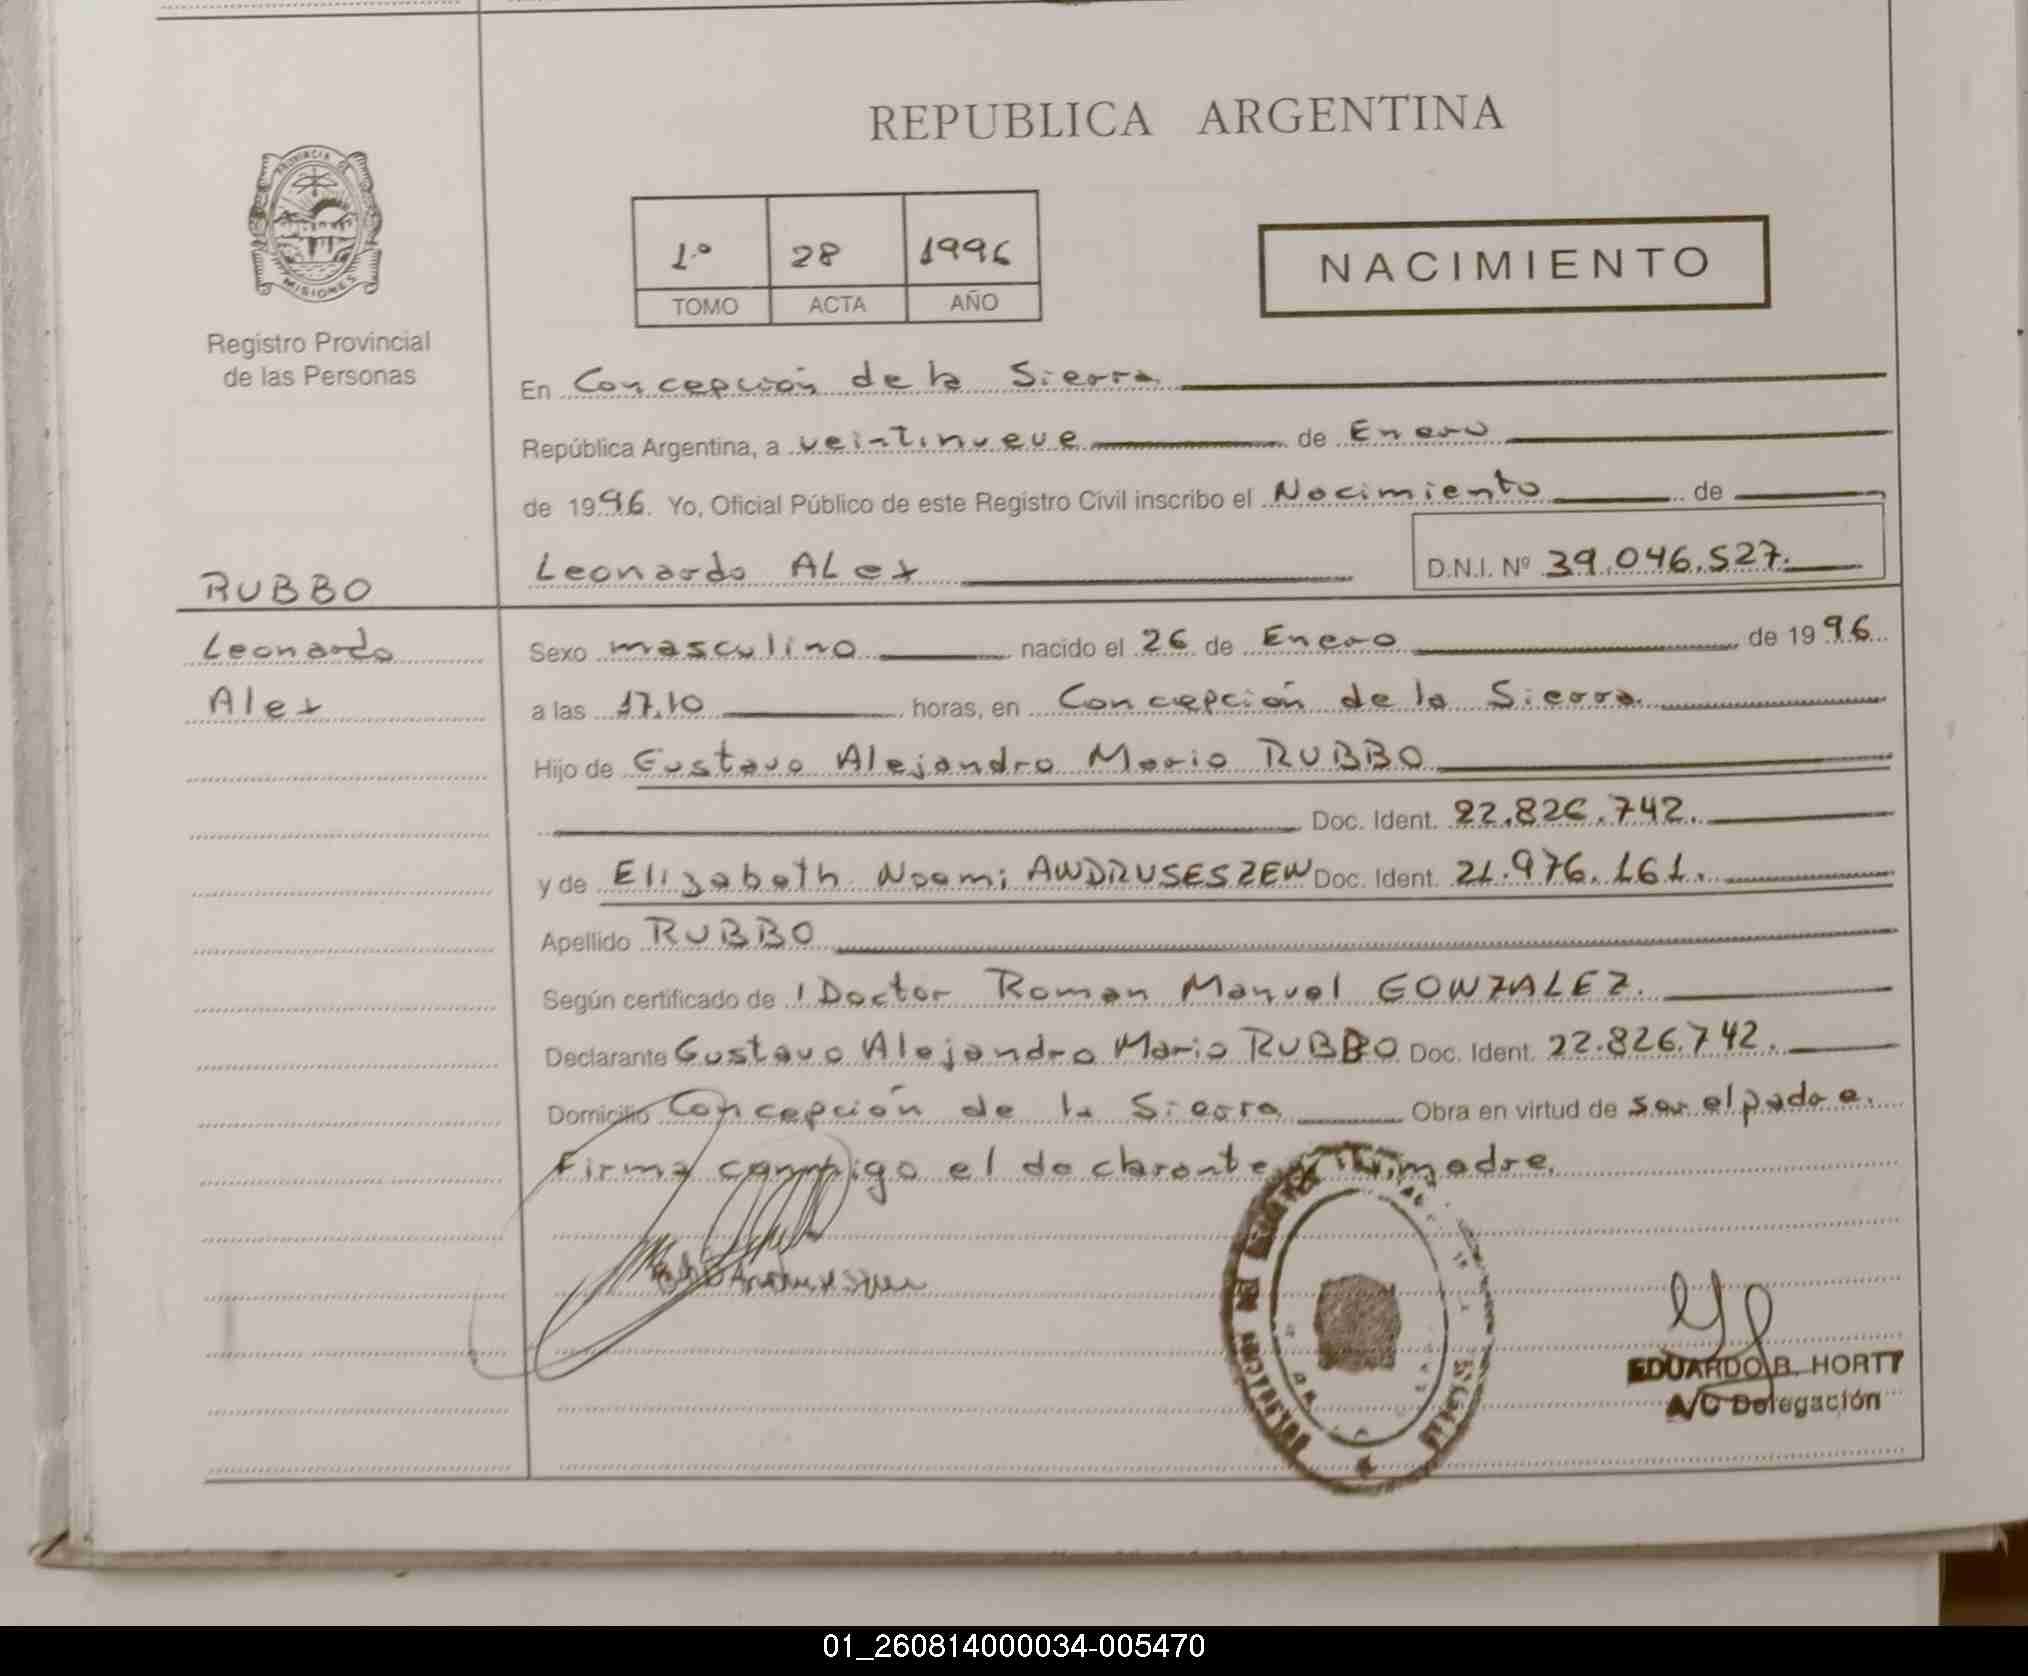 REPUBLICA ARGENTINA
PROVINCIA DE
MISIONES
Registro Provincial
de las Personas
1º 28 1996
TOMO ACTA AÑO
NACIMIENTO
En Concepción de la Sierra
República Argentina, a veintinueve de Enero
de 1996. Yo, Oficial Público de este Registro Civil inscribo el Nacimiento de
Leonardo ALex D.N.I. Nº 39.046.527.
RUBBO
Leonardo
Alex
Sexo masculino nacido el 26 de Enero de 1996
a las 17,10 horas, en Concepción de la Sierra.
Hijo de Gustavo Alejandro Mario RUBBO
Doc. Ident. 22.826.742.
y de Elizabeth Noemi ANDRUSESZEN Doc. Ident. 21.976.161.
Apellido RUBBO
Según certificado de l Doctor Roman Manuel GONZALEZ.
Declarante Gustavo Alejandro Mario RUBBO Doc. Ident. 22.826.742.
Domicilio Concepción de la Sierra Obra en virtud de ser el padre.
Firma conmigo el declarante y la madre.
EDUARDO R. HORTT
A/C Delegación
01_260814000034-005470